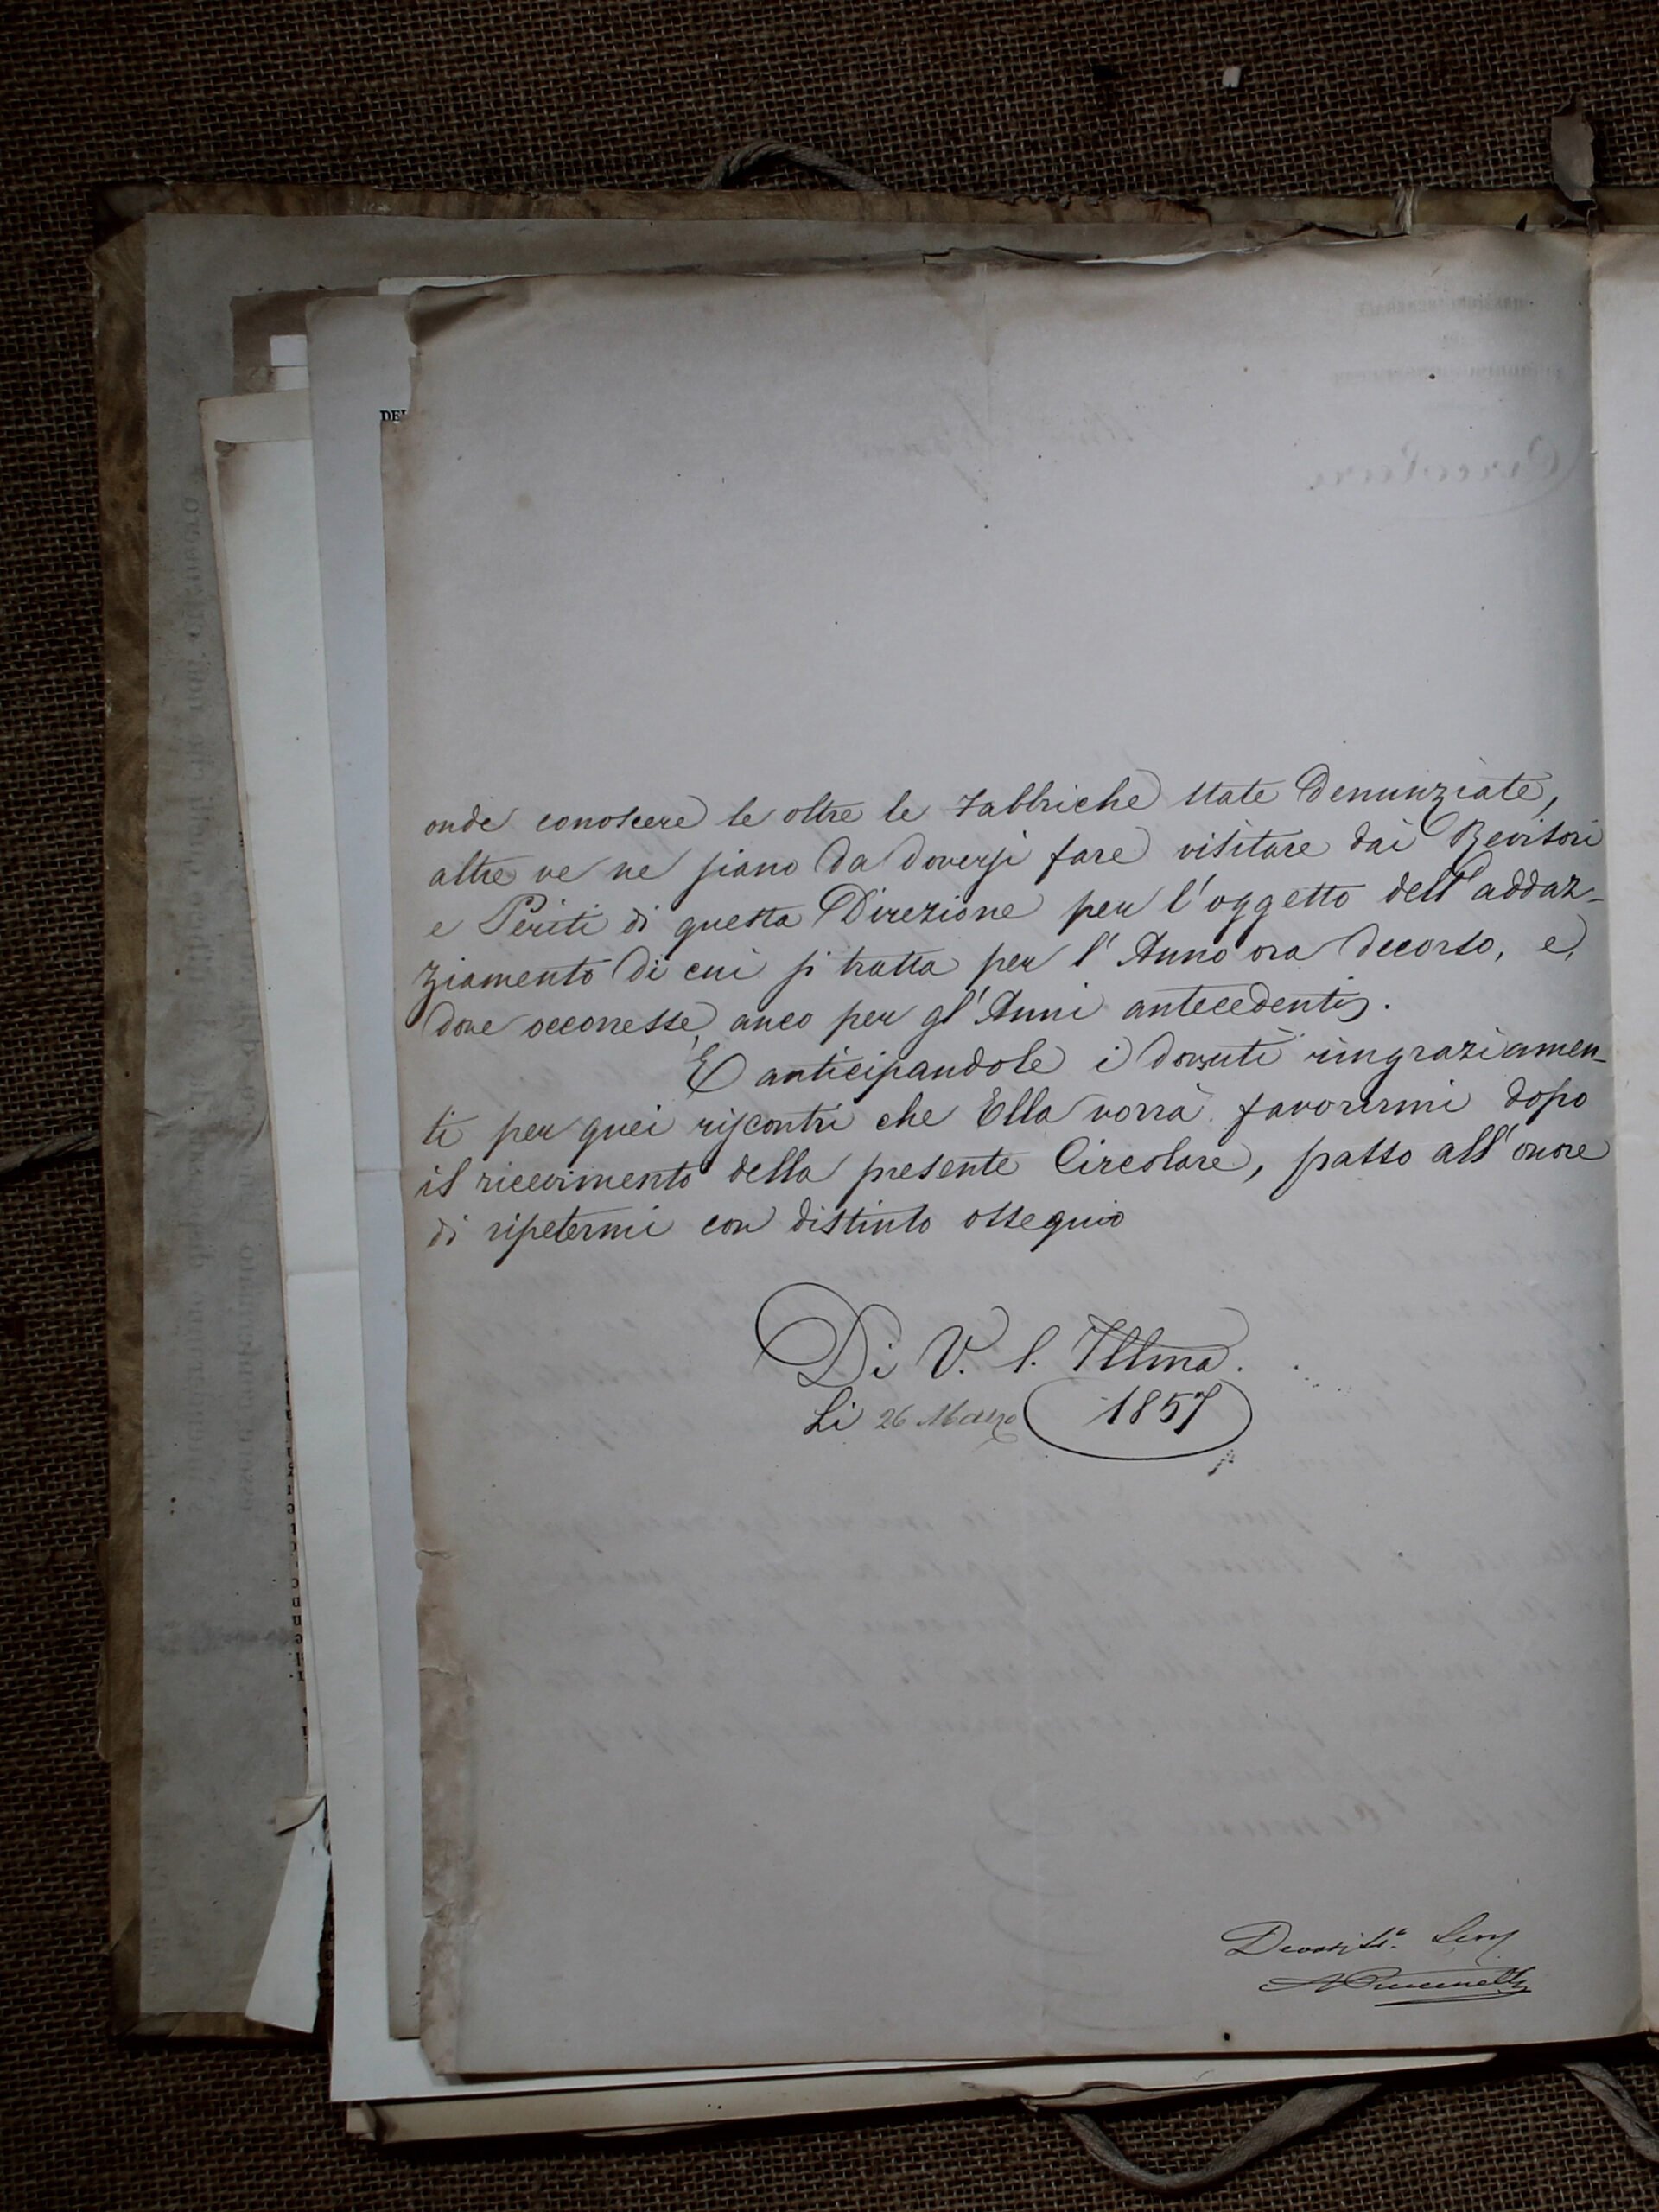 DEL
onde conoscere se oltre le Fabbriche state denunziate,
altre ve ne siano da doversi fare visitare dai Revisori
e Periti di questa Direzione per l'oggetto dell'addaz-
ziamento di cui si tratta per l'Anno ora decorso, e,
dove occorresse, anco per gl'Anni antecedenti.
E anticipandole i dovuti ringraziamen-
ti per quei riscontri che Ella vorrà favorirmi dopo
il ricevimento della presente Circolare, passo all'onore
di ripetermi con distinto ossequio
Di V. S. Illma.
Li 26 Marzo 1857
Devotis. Serv